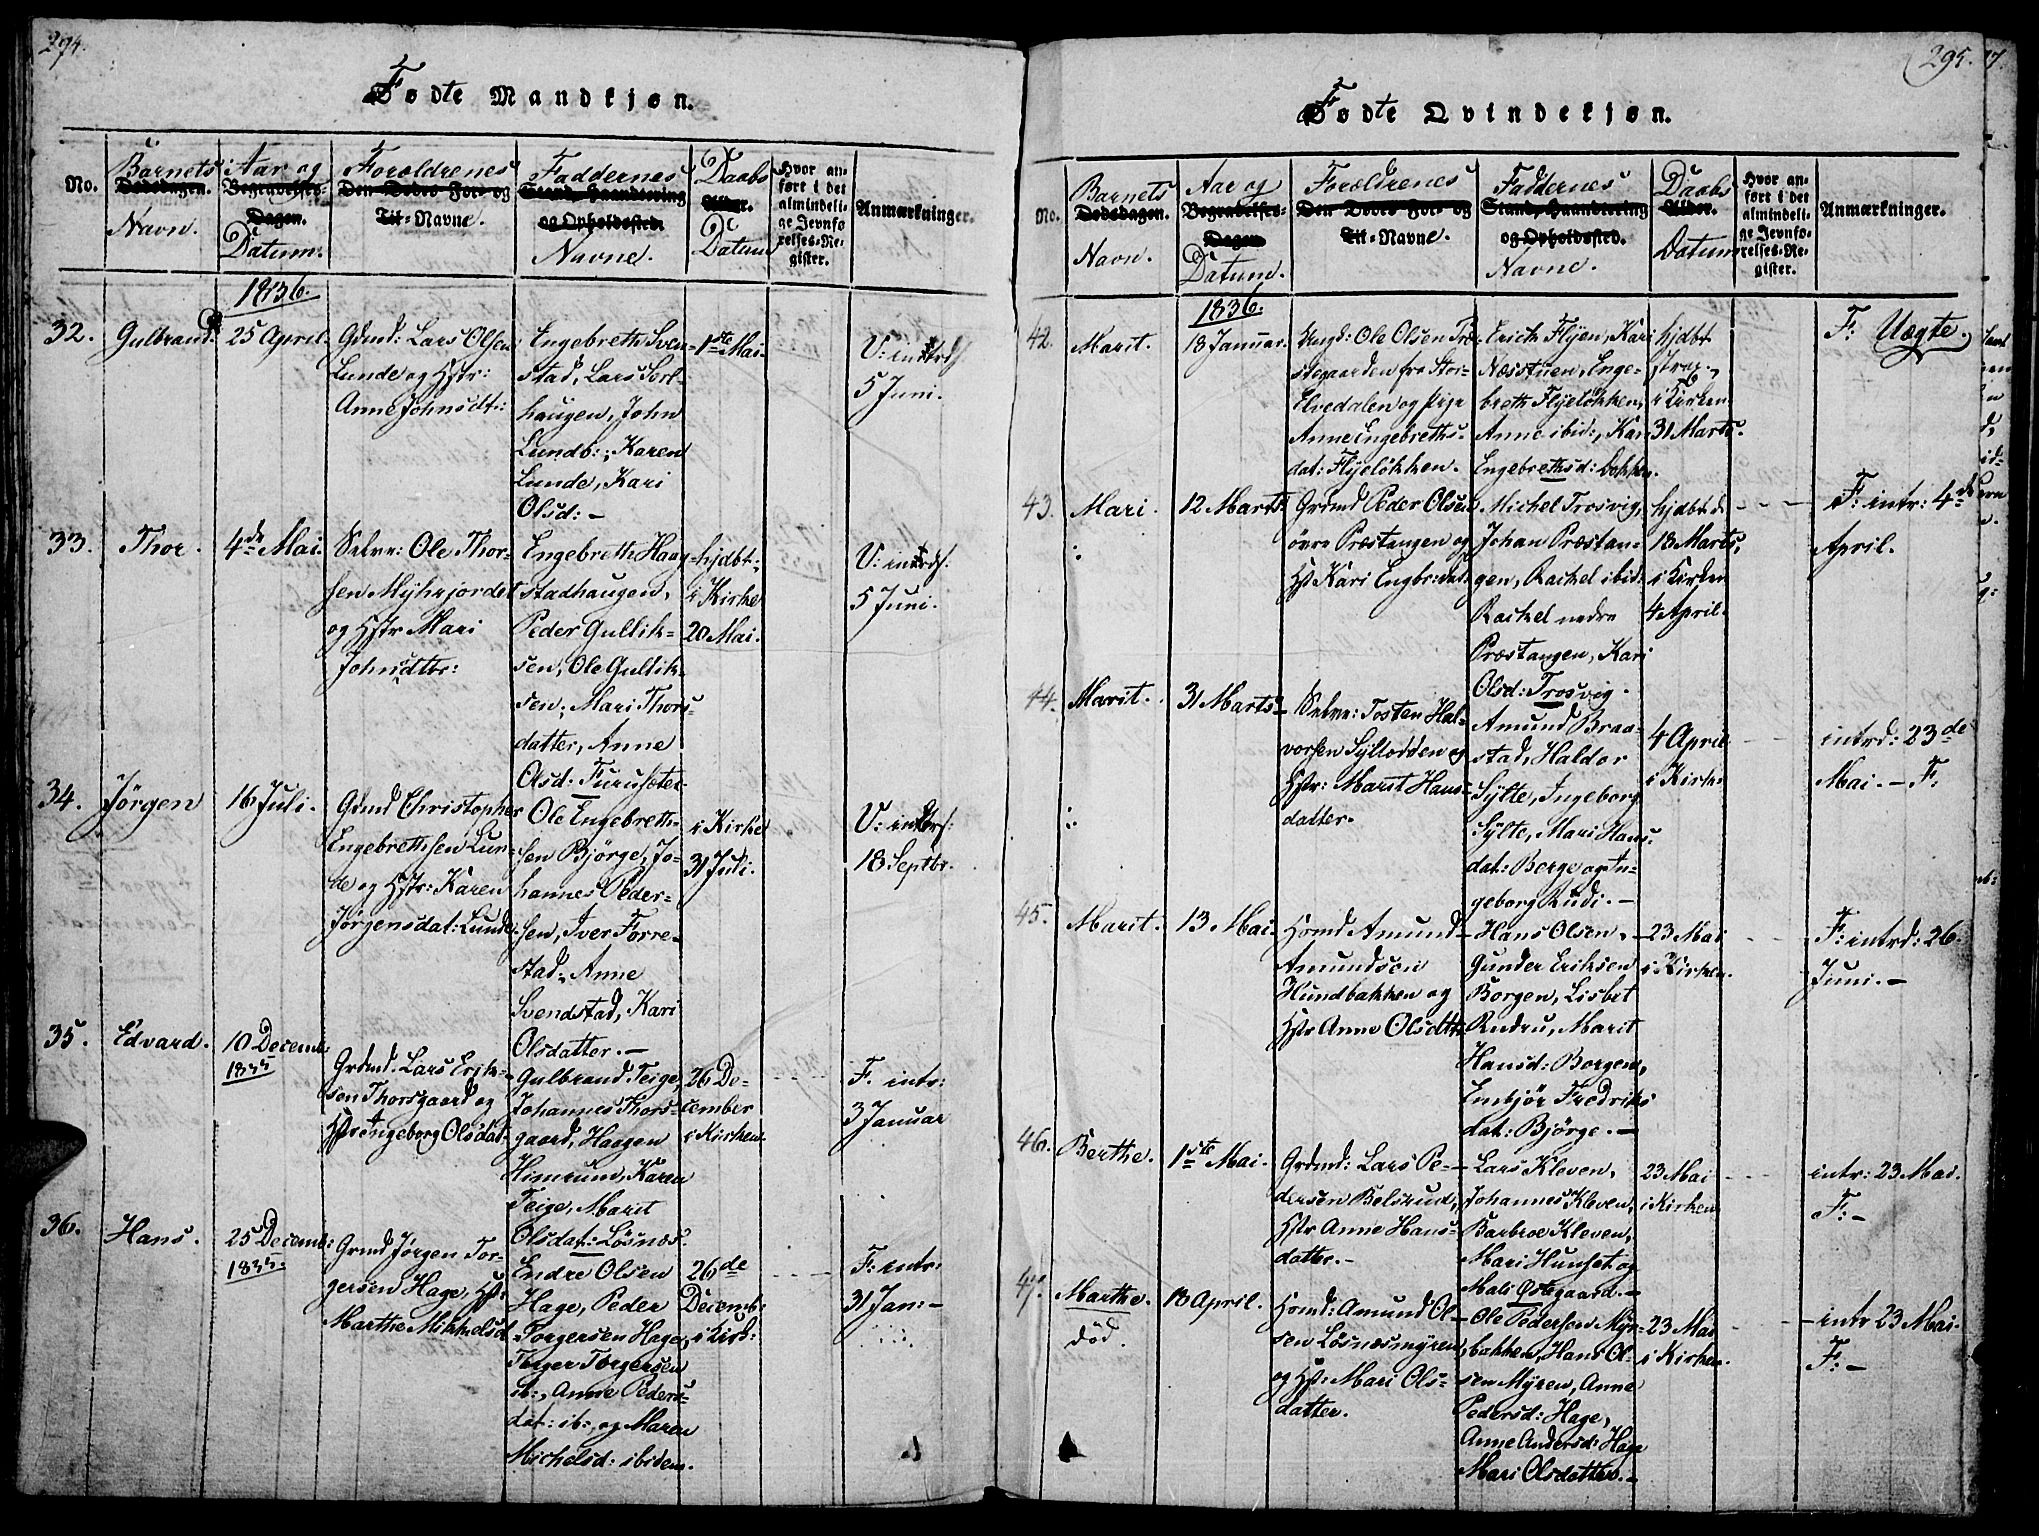 294.
Fodte Mandkjøn.
No.
Barnets
Dødsdagen.
Navn.
Aar og
Begravelses-
Dagen.
Datum.
Forældrenes
Den Dødes For- og
Til-Navne.
Faddernes
Stand, Haandtering
og Opholdssted.
Navne.
Daabs
Alder.
Datum
Hvor an-
ført i det
almindeli-
ge Jevnfø-
relses-Re-
gister.
Anmærkninger.
1836.
32.
Gulbrand
25 April.
Gdmd: Lars Olsen
Lunde og Hstr:
Anne Johnsdtr:
Engebreth Sven-
stad, Lars Sørl-
haugen, John
Lundb:, Karen
Lunde, Kari
Olsd: -
1ste Mai
V: introd:
5 Juni.
33.
Thor.
4de Mai.
Selve: Ole Thor-
sen Myhrjordet
og Hstr Mari
Johnsdtr:
Engebreth Haag-
stadhaugen,
Peder Gullik-
sen, Ole Gullik-
sen, Mari Thors-
datter, Anne
Olsd: Furusæter.
hjdbt:,
i Kirke
20 Mai.
V: introd:
5 Juni.
34.
Jörgen
16 Juli.
Gdmd Christopher
Engebrethsen Lun-
de og Hstr: Karen
Jörgensdat: Lunde.
Ole Engebreth-
sen Björge, Jo-
hannes Peder-
sen, Iver Forre-
stad, Anne
Svendstad, Kari
Olsdatter. -
i Kirke
31 Juli.
V: introd:
18 Septbr.
35.
Edvard.
10 Decemb:
1835
Grdmd. Lars Erik-
sen Thorsgaard og
Hstr Ingeborg Olsdat:
Gulbrand Teige,
Johannes Thors-
gaard, Haagen
Himrund, Karen
Teige, Marit
Olsdat: Lösnæs.
26 De-
cember
i Kirken.
F. intr:
3 Januar
36.
Hans.
25 Decemb:
1835.
Grmd Jörgen Tor-
gersen Hage, Hst:
Marthe Mikkelsd
Endre Olsen
Hage, Peder
Torgersen Hage,
Torger Torgersen
ib:, Anne Peders-
dat: ib:, og Maren
Michelsd: ibidem.
26de
Decemb:
i Kirk:
F: intr:
31 Jan: -
295.
Fodte Qvindekjøn.
No.
Barnets
Dødsdagen.
Navn.
Aar og
Begravelses-
Dagen
Datum.
Forældrenes
Den Dødes For- og
Til-Navne.
Faddernes
Stand, Haandtering
og Opholdssted.
Navne.
Daabs
Alder.
Datum
Hvor an-
ført i det
almindeli-
ge Jevnfø-
relses-Re-
gister.
Anmærkninger.
1836.
42.
Marit.
18 Januar.
Ungd: Ole Olsen Træ-
stegaarden fra Stor-
Elvedalen og Pige
Anne Engebreths-
dat: Flyelökken.
Erich Flyen, Kari
Næsstuen, Enge-
breth Flyelökken,
Anne ibid:, Kari
Engebrethsd: Bakken.
hjdbt
strax.,
i Kirken
31 Marts.
F: Uægte.
43.
Mari.
12 Marts
Grdmd Peder Olsen
övre Præstangen og
Hst Kari Engbr:dat:
Michel Trosvig,
Johan Præstan-
gen, Rachel ibid:
Rachel nedre
Præstangen, Kari
Olsd: Trosvig.
hjdbt d
13 Marts,
i Kirken
4 April.
F: intr: 4de
April.
44.
Marit.
31 Marts
Selve: Tosten Hal-
vorsen Sylteöden og
Hstr: Marit Hans-
datter.
Amund Braa-
stad, Haldor
Sylte, Ingeborg
Sylte, Mari Hans-
dat: Berge og In-
geborg Rudi. -
4 April
i Kirk:
introd: 23de
Mai. - F.
45.
Marit.
13 Mai
Homd Amund
Amundsen
Hundbakken og
Hstr Anne Olsdttr
Hans Olsen,
Gunder Eriksen
Borgen, Lisbet
Rudru, Marit
Hansd: Borgen,
Embjör Fredriks
dat: Björge. -
23 Mai
i Kirken.
F: introd: 26.
Juni. -
46.
Berthe.
1ste Mai.
Grdmd: Lars Pe-
dersen Belsrud,
Hstr Anne Hans-
datter. -
Lars Kleven,
Johannes Kleven,
Barbroe Kleven,
Mari Hunset og
Mali Östegaard. -
23 Mai
i Kirken
intr: 23 Mai.
F: -
47.
Marthe.
död.
13 April.
Homd: Amund Ol-
sen Lösnæsmyren,
og Hst: Mari Ols-
datter.
Ole Pedersen Myr-
bakken, Hans Ol-
sen Myren, Anne
Pedersd: Hage,
Anne Andersd: Hage
Mari Olsdatter. -
23 Mai
i Kirken.
intr 23 Mai.
F: -